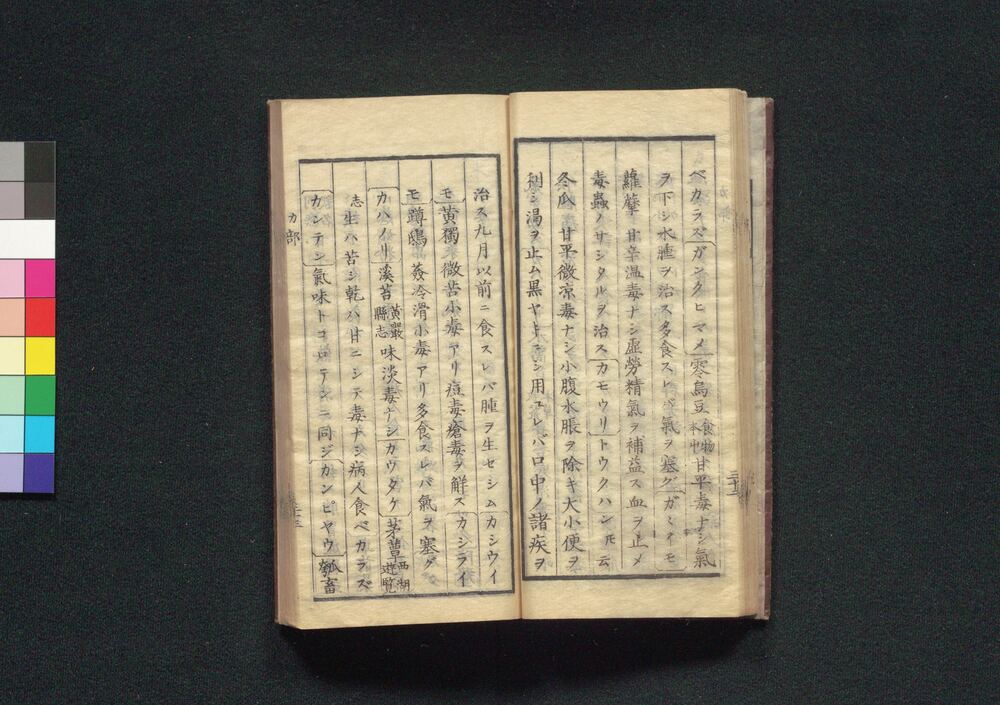 ベカラズガンクヒマメ雰烏豆食物本艸甘平毒ナシ氣
ヲ下シ水腫ヲ治ス多食スレバ氣ヲ塞グガヾイモ
蘿藦甘辛温毒ナシ虚勞精氣ヲ補益ス血ヲ止メ
毒蟲ノサシタルヲ治スカモウリトウグハントモ云
冬瓜甘平微凉毒ナシ小腹水脹ヲ除キ大小便ヲ
利シ渇ヲ止ム黒ヤキニシ用ユレバ口中ノ諸疾ヲ
治ス九月以前ニ食スレバ腫ヲ生セシムカシウイ
モ黄獨微苦小毒アリ痘毒瘡毒ヲ觧スカシライ
モ蹲鴟蒸冷滑小毒アリ多食スレバ氣ヲ塞グ
カハノリ溪苔黄巖縣志味淡毒ナシカウタケ茅蕈西湖遊覧
志生ハ苦シ乾ハ甘ニシテ毒ナシ病人食ベカラズ
カンテン氣味トコロテンニ同ジカンピヤウ瓠畜
カ部